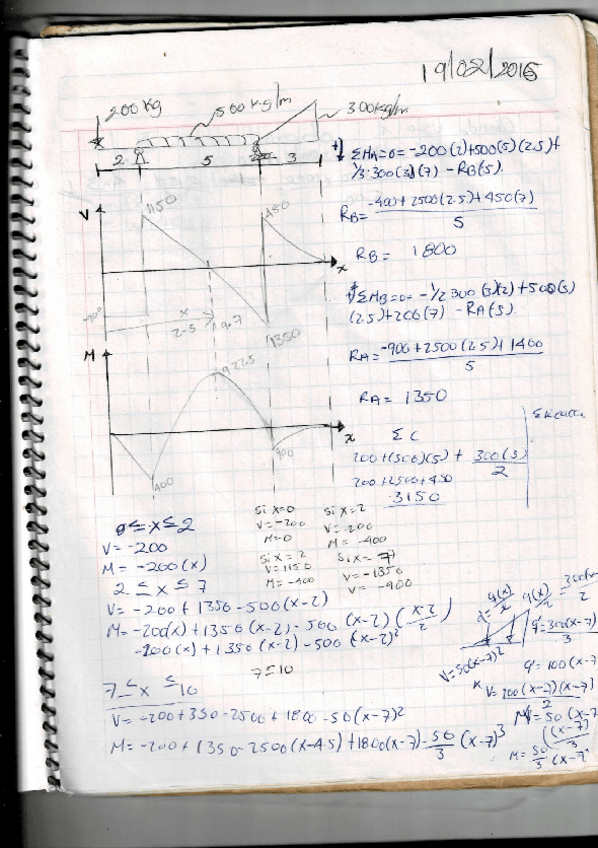 19/02/2016
200 Kg
500 Kg/m
300 Kg/m
2
5
3
ΣMA=0= -200(2)+500(5)(2.5)+
1/2·300(3)(7) - RB(5).
V
1150
450
RB= -400+2500(2.5)+450(7)
5
x
RB= 1800
x
2.5
1350
ΣMB=0= -1/2 300(3)(2)+500(5)
(2.5)+200(7) - RA(5).
M
922.5
RA= -900+2500(2.5)+1400
5
RA= 1350
x
400
900
Σ C
200+(500)(5) + 300(3)
2
200+2500+450
3150
0 ≤ x ≤ 2
V= -200
M= -200(x)
Si x=0
V=-200
M=0
Si x=2
V=-200
M= -400
Si x= 2
V= 1150
M= -400
Si x= 7
V= -1350
V= -900
2 ≤ x ≤ 7
V= -200 + 1350 - 500(x-2)
M= -200(x) + 1350(x-2) - 500 (x-2) (x-2)
2
-200(x) + 1350(x-2) - 500 (x-2)²
7≤10
7 ≤ x ≤ 10
V= -200+1350-2500+1800-50(x-7)²
M= -200+1350-2500(x-4.5)+1800(x-7)-50/3 (x-7)³
V=50(x-7)²
q'=300(x-7)
3
q'= 100(x-7
V= 100(x-7)(x-7)
2
M= 50(x-7
(x-7)
3
M= 50/3 (x-7